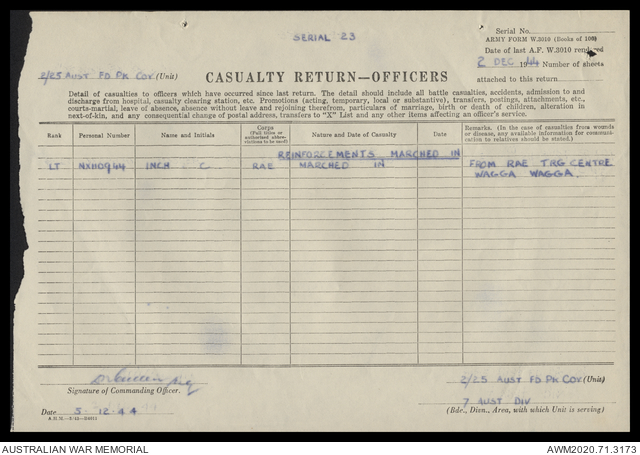 Serial No.
SERIAL 23
ARMY FORM W.3010 (Books of 100)
Date of last A.F. W.3010 rendered
2 DEC 1944 Number of sheets
2/25 AUST FD PK COY (Unit)
CASUALTY RETURN—OFFICERS
attached to this return
Detail of casualties to officers which have occurred since last return. The detail should include all battle casualties, accidents, admission to and
discharge from hospital, casualty clearing station, etc. Promotions (acting, temporary, local or substantive), transfers, postings, attachments, etc.,
courts-martial, leave of absence, absence without leave and rejoining therefrom, particulars of marriage, birth or death of children, alteration in
next-of-kin, and any consequential change of postal address, transfers to "X" List and any other items affecting an officer's service.
Rank Personal Number Name and Initials Corps (Full titles or authorised abbreviations to be used) Nature and Date of Casualty Date Remarks. (In the case of casualties from wounds or disease, any available information for communication to relatives should be stated.)
REINFORCEMENTS MARCHED IN
LT NX110944 INCH C RAE MARCHED IN FROM RAE TRG CENTRE
WAGGA WAGGA.
Signature of Commanding Officer.
2/25 AUST FD PK COY (Unit)
7 AUST DIV
Date 5.12.44
(Bde., Divn., Area, with which Unit is serving)
AUSTRALIAN WAR MEMORIAL
AWM2020.71.3173